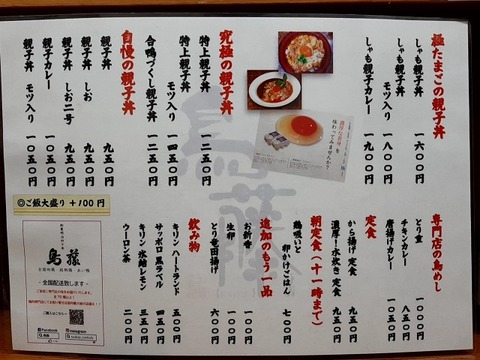 極たまごの親子丼
しゃも親子丼 一六〇〇
しゃも親子丼 モツ入り 一八〇〇
しゃも親子カレー 一九〇〇
濃厚な黄身を味わってみませんか?
究極の親子丼
特上親子丼 一二五〇
特上親子丼 モツ入り 一四五〇
合鴨づくし親子丼 一二五〇
自慢の親子丼
親子丼 九五〇
親子丼 しお 九五〇
親子丼 しお二号 九五〇
親子カレー 一〇五〇
親子丼 モツ入り 一〇五〇
◎ご飯大盛り +100円
専門店の鳥めし
とり重
チキンカレー 八五〇
唐揚げカレー
定食
から揚げ定食 九五〇
濃厚!水炊き定食 九五〇
朝定食(十一時まで)
鶏吸いと卵かけごはん 七〇〇
追加のもう一品
お新香
生卵
とり竜田揚げ 六〇〇
飲み物
キリン ハートランド 五五〇
サッポロ 黒ラベル 四五〇
キリン 氷結レモン 三五〇
ウーロン茶 二〇〇
鳥藤
全国配送致します
ご購入はこちら
Facebook
Instagram
鳥藤